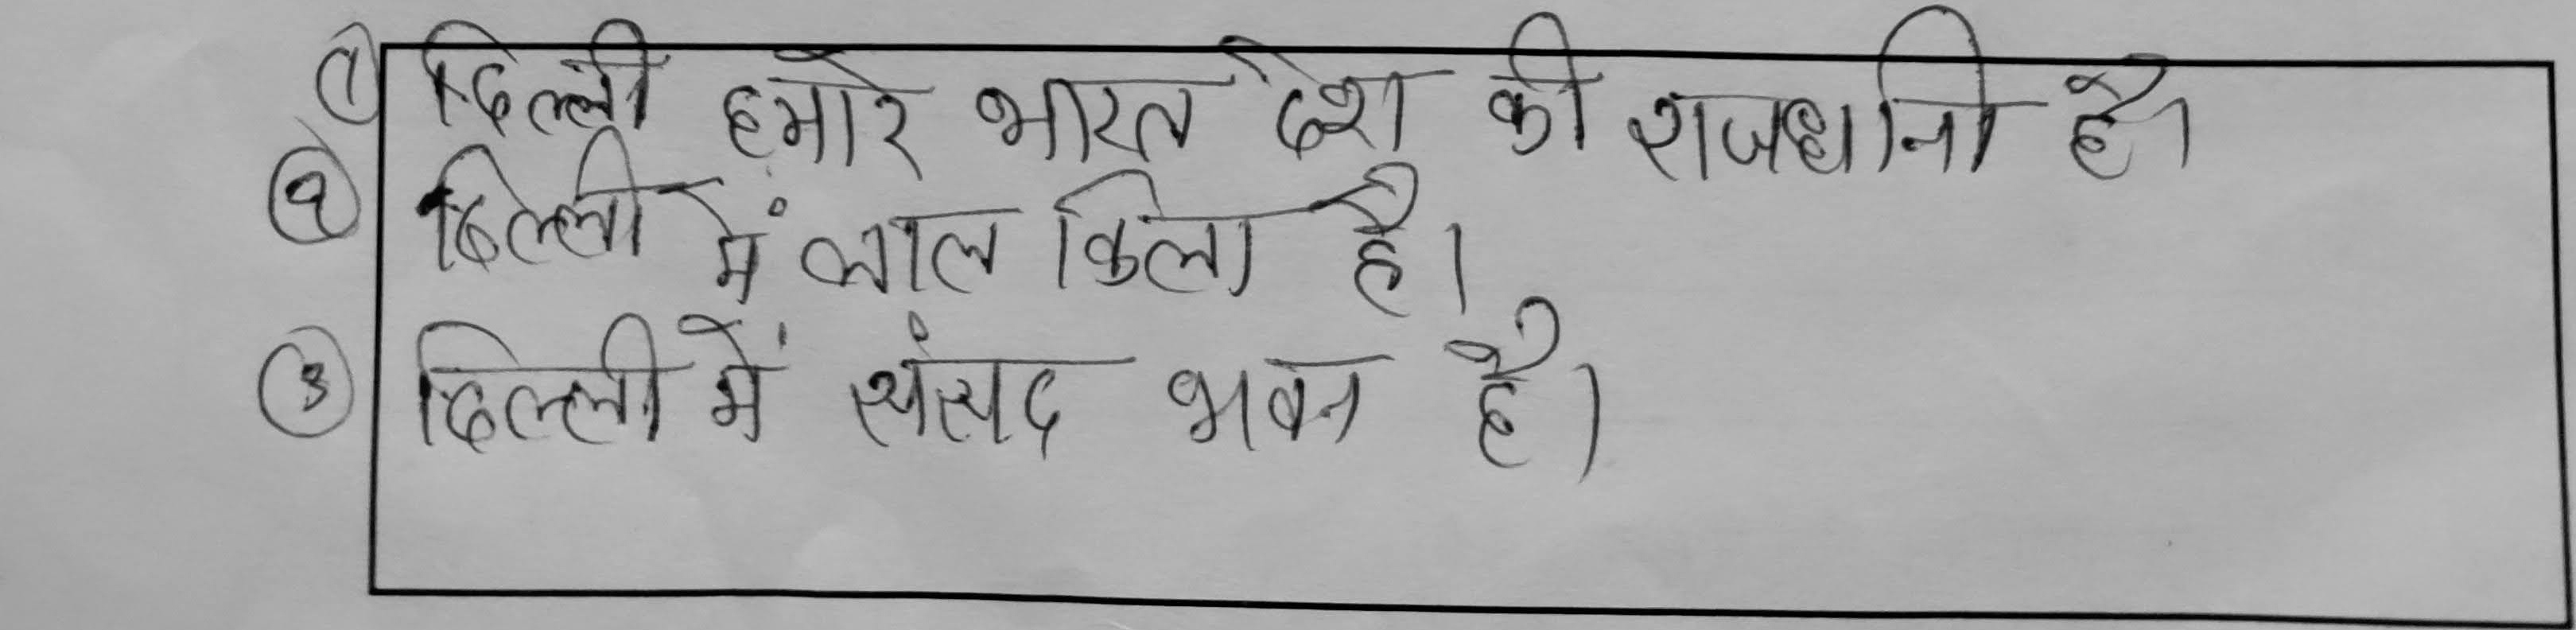 ① दिल्ली हमारे भारत देश की राजधानी है।
② दिल्ली में लाल किला है।
③ दिल्ली में संसद भवन है।